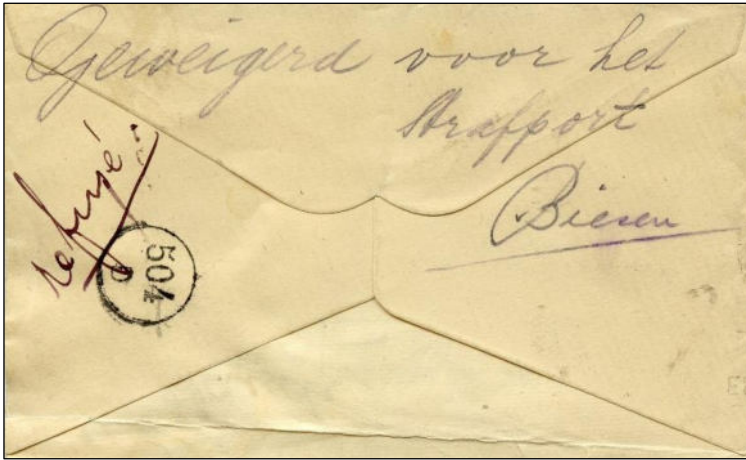 Geweigerd voor het
strafport
Biesen
refusé.
504